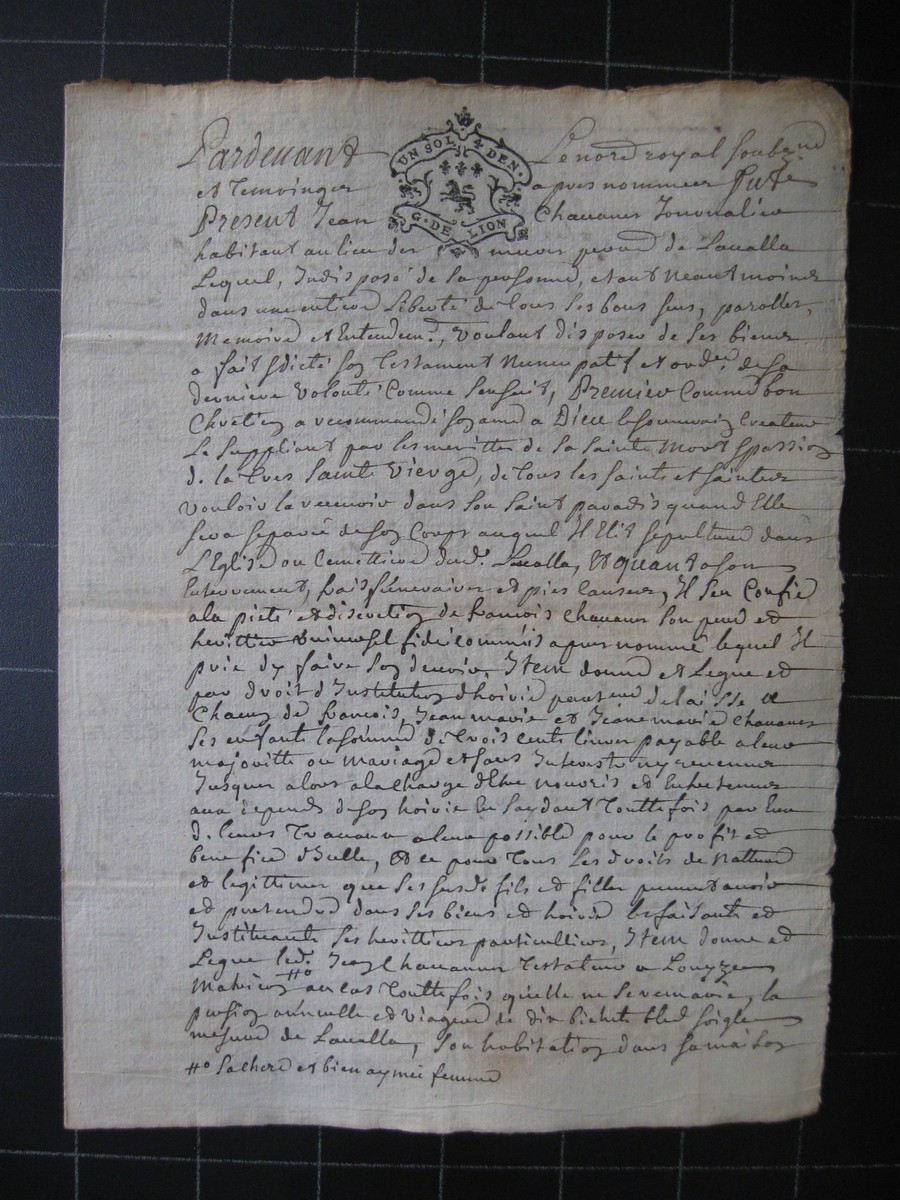 Pardevant Le no.re royal soub.né
UN SOL 4 DEN.
G. DE LION
et temoings apres nommes fut
Present Jean Chavanes Journalier
habitant au lieu des mures peroisse de Lavalla
Lequel, Indisposé de sa personne, etant neantmoins
dans une entiere Liberté de tous ses bons sens, parolles,
Memoire et Entendem.t, voulant disposer de ses biens
a fait & dicté son Testament Nuncupatif et ord.ce de sa
derniere volonté Comme sensuit, Premier Comme bon
Chretien a recommandé son ame a Dieu le souverain Createur
Le suppliant par les merittes de sa sainte Mort & passion
de la tres Sainte Vierge, de tous les saints et saintes
vouloir la recevoir dans son saint paradis quand Elle
sera separée de son Corps auquel Il Elit sepulture dans
L'Eglise ou Cemettiere dud. Lavalla, Et quant a son
Enterrement, frais funeraires et pies causes, Il sen Confie
a la pieté et discretion de francois Chavanes son et
herittier universel fideicommis apres nommé lequel Il
prie dy faire son devoir, Item donne et Legue et
par droit d'Institution d'hoirie delaisse a
Chacun de francois, Jean marie et Jeane marie Chavanes
ses enfants la somme de trois cents livres payable a leur
majoritté ou mariage et sans Interests ny revenus
Jusques alors a la charge d'Etre nouris et Entretenus
aux depends de son hoirie En s'aydant Touttefois par Eux
de leurs Travaux a leur possible pour le profit et
benefice d'Icelle, Et ce pour tous les droits de Nature
et legittimes que ses susd. fils et filles peuvent avoir
et pretendre dans ses biens et hoirie les faisants et
Instituants ses herittiers particulliers, Item donne et
Legue led. Jean Chavannes Testateur a Louyze
Mahieu #o au cas touttefois quelle ne se remarie, la
pension annuelle et viagere de dix bichets bled seigle
mesure de Lavalla, son habitation dans sa maison
#o sa chere et bien aymée femme